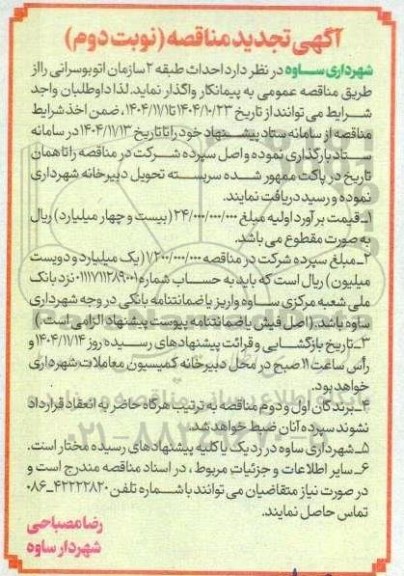 آگهی تجدید مناقصه (نوبت دوم)
شهرداری ساوه در نظر دارد احداث طبقه ۲ سازمان اتوبوسرانی را از
طریق مناقصه عمومی به پیمانکار واگذار نماید. لذا داوطلبان واجد
شرایط می توانند از تاریخ ۱۴۰۴/۱۰/۲۳ تا ۱۴۰۴/۱۱/۱، ضمن اخذ شرایط
مناقصه از سامانه ستاد پیشنهاد خود را تا تاریخ ۱۴۰۴/۱۱/۱۳ در سامانه
ستاد بارگذاری نموده و اصل سپرده شرکت در مناقصه را تا همان
تاریخ در پاکت ممهور شده سربسته تحویل دبیرخانه شهرداری
نموده و رسید دریافت نمایند.
۱ـ قیمت برآورد اولیه مبلغ ۲۴/۰۰۰/۰۰۰/۰۰۰ (بیست و چهار میلیارد) ریال
به صورت مقطوع می باشد.
۲ـ مبلغ سپرده شرکت در مناقصه ۱/۲۰۰/۰۰۰/۰۰۰ (یک میلیارد و دویست
میلیون) ریال است که باید به حساب شماره ۰۱۱۱۷۱۱۲۸۹۰۰۱ نزد بانک
ملی شعبه مرکزی ساوه واریز یا ضمانتنامه بانکی در وجه شهرداری
ساوه باشد. (اصل فیش یا ضمانتنامه پیوست پیشنهاد الزامی است.)
۳ـ تاریخ بازگشایی و قرائت پیشنهادهای رسیده روز ۱۴۰۴/۱۱/۱۴ و
رأس ساعت ۱۱ صبح در محل دبیرخانه کمیسیون معاملات شهرداری
خواهد بود.
۴ـ برندگان اول و دوم مناقصه به ترتیب هرگاه حاضر به انعقاد قرارداد
نشوند سپرده آنان ضبط خواهد شد.
۵ـ شهرداری ساوه در رد یک یا کلیه پیشنهادهای رسیده مختار است.
۶ـ سایر اطلاعات و جزئیات مربوط، در اسناد مناقصه مندرج است و
در صورت نیاز متقاضیان می توانند با شماره تلفن ۴۲۲۲۲۸۲۰ـ۰۸۶
تماس حاصل نمایند.
رضا مصباحی
شهردار ساوه